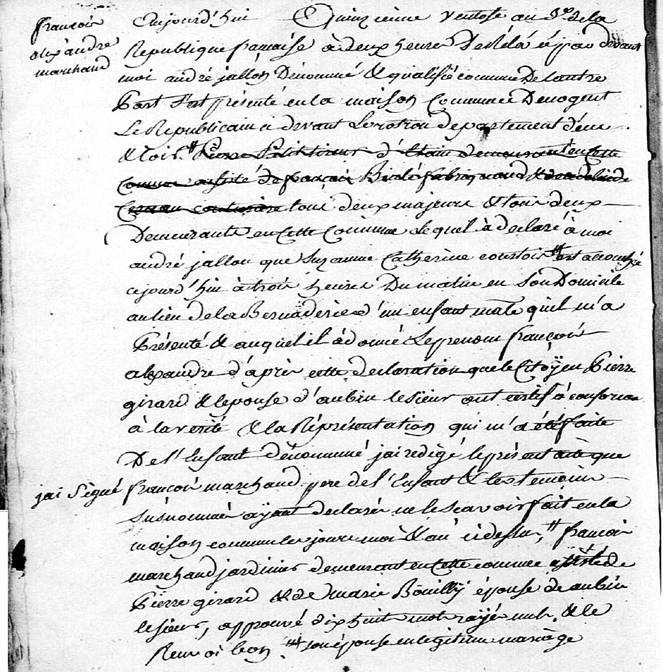 françois
alexandre
marchand
aujourd'hui Quinzieme ventose an 3e de la
Republique francaise à deux heures De Rélévé pardevant
moi andré jallon Denommé & qualifié comme De l'autre
Part s'est présenté en la maison Commune De nogent
Le Républicain ci devant Le rotrou departement d'eure
& Loir # Pierre d' demeurant en cette
Commune assisté de françois &
Couturiere tous deux majeure & tous deux
Demeurante en Cette Commune Lequel à declaré à moi
andré jallon que Suzanne Catherine # est accouchée
cejourd'hui à trois heures Du matin en Son Domicile
au lieu de la Bernaderie d'un enfant male qu'il m'a
Présenté & auquel il à donné Le prenom françois
alexandre d'après cette declaration que le Citoÿen Pierre
girard & lepouse d'aubin lesieur ont certifié conforme
à la verité & la Réprésentation qui m'a été faitte
De l'Enfant denommé jai redigé le présent acte que
jai Signé françois marchand pere de l'Enfant & les temoins
susnommé aÿant declaré ne le scavoir fait en la
maison commune les jour mois & an cidessus, # françois
marchand jardinier demeurant en cette commune assisté de
Pierre girard & de marie Bouilly épouse de aubin
lesieur, approuvé dix huit mots rayé nuls & le
Renvoi bon. # son épouse en legitime mariage